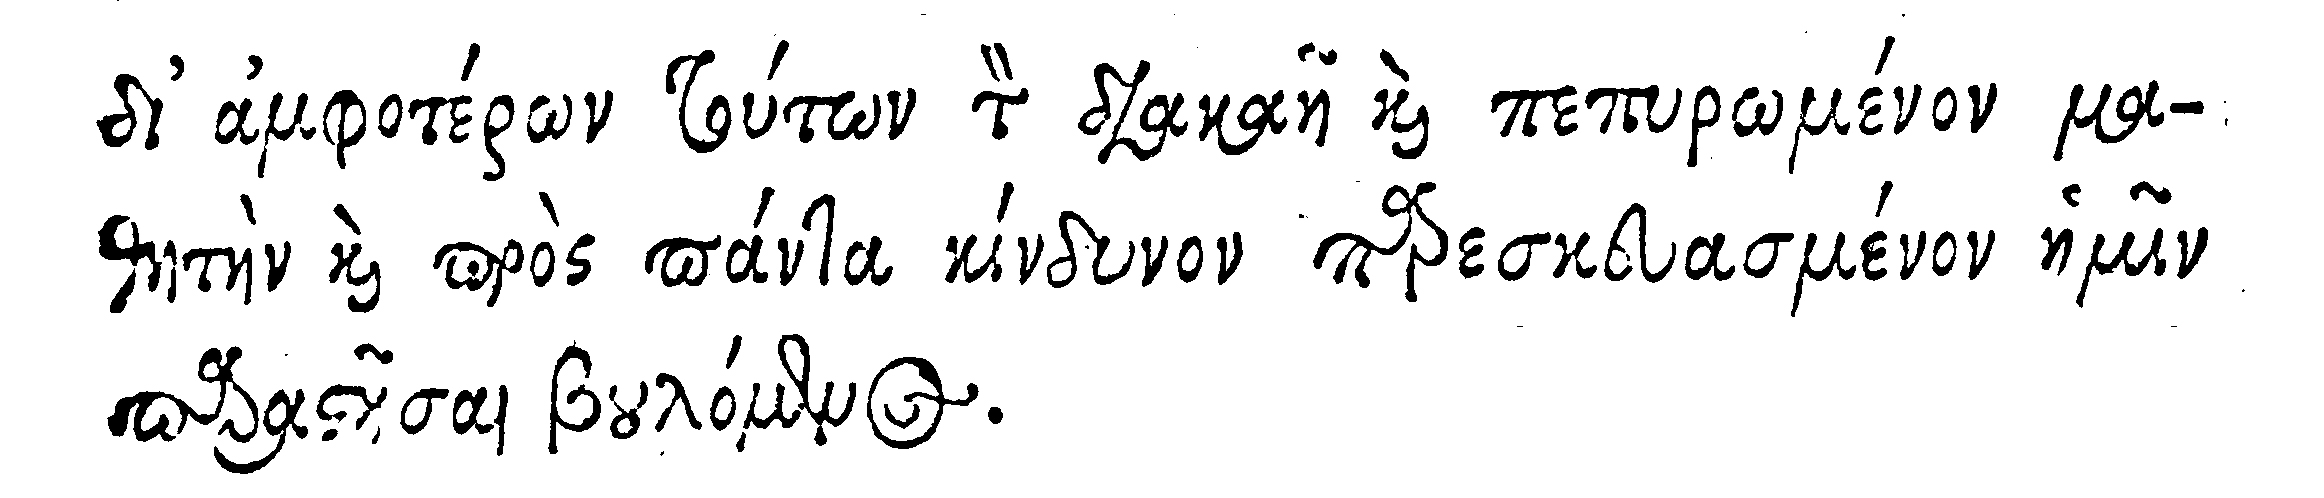 δι' ἀμφοτέρων τούτων τὸν διακαῆ καὶ πεπυρωμένον μα-
θητὴν καὶ πρὸς πάντα κίνδυνον παρεσκευασμένον ἡμῖν
παραστῆσαι βουλόμενος.